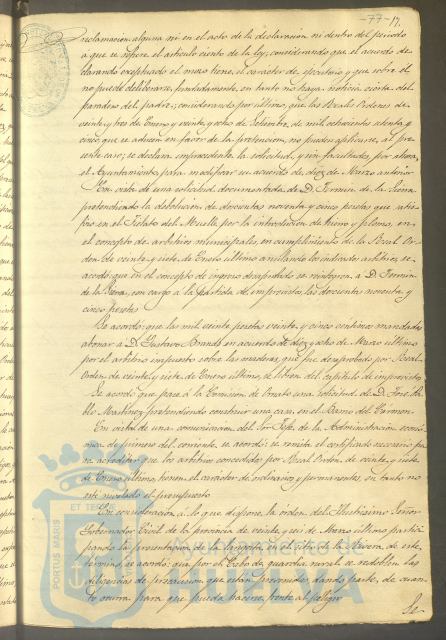 -77- 17,
reclamacion alguna ni en el acto de la declaracion ni dentro del periodo
á que se refiere el artículo ciento de la ley; considerando que el acuerdo de-
clarando exceptuado el mozo tiene el carácter de ejecutorio y que sobre él
no puede deliberarse, fundadamente, en tanto no haya noticia cierta del
paradero del padre; considerando por último, que las Reales Ordenes de
veinte y tres de Enero y veinte y ocho de Setiembre, de mil ochocientos setenta y
cinco que se aducen en favor de la pretencion, no pueden aplicarse, al pre-
sente caso; se declara improcedente la solicitud, y sin facultades, por ahora,
el Ayuntamiento para modificar su acuerdo de diez de Marzo anterior
En vista de una solicitud documentada de D. Fermin de la
pretendiendo la debolucion de doscientas noventa y cinco pesetas que satis-
fizo en el Fielato del Muelle, por la introduccion de hierro y plomo, en
el concepto de arbitrios municipales, en cumplimiento de la Real Or-
den de veinte y siete de Enero último anulando los indicados arbitrios, se
acordó: que en el concepto de ingreso desaprobado se reintegren á D. Fermin
de la con cargo á la partida de imprevistos, las doscientas noventa y
cinco pesetas
Se acordó: que las mil veinte pesetas veinte y cinco centimos mandadas
abonar á D. Gustavo en acuerdo de diez y ocho de Marzo último
por el arbitrio impuesto sobre las maderas, que fue desaprobado por Real
Orden de veinte y siete de Enero último, se libren del capítulo de imprevistos
Se acordó que pase á la Comision de Ornato una solicitud de D. José Pa-
blo Martinez pretendiendo construir una casa en el Barrio del Carmen.
En vista de una comunicacion del Sor Jefe de la Administracion econó-
mica de primero del corriente, se acordó: se remita el certificado necesario pa-
ra acreditar que los arbitrios concedidos por Real Orden de veinte y siete
de Enero último tienen el caracter de ordinarios y permanentes, en tanto no
esté nivelado el presupuesto
En consideracion á lo que dispone la orden del Ilustrísimo Señor
Gobernador Civil de la provincia de veinte y seis de Marzo último partici-
pando la presentacion de la langosta en el sitio de de este
término, se acordó: que por el Cabo de guardia rural se redoblen las
diligencias de precaucion que están prevenidas, dando parte, de cuan-
to ocurra para que pueda hacerse frente al peligro
Se
Ayuntamiento de
HUELVA
PORTUS MARIS
ET TERRAE